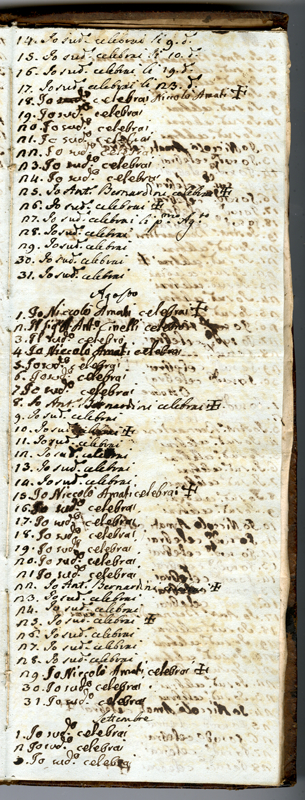 14. Io sud.º celebrai li 9. d.º
15. Io sud.º celebrai li 10. d.º
16. Io sud.º celebrai li 19. d.º
17. Io sud.º celebrai li 23. d.º
18. Io celebrai Niccolo Amati ✠
19. Io sud.º celebrai
20. Io sud.º celebrai
21. Io sud.º celebrai
22. Io sud.º celebrai
23. Io sud.º celebrai
24. Io sud.º celebrai
25. Io Ant.º Bernardini celebrai ✠
26. Io sud.º celebrai ✠
27. Io sud.º celebrai li p.mo Ag.to
28. Io sud.º celebrai
29. Io sud.º celebrai
30. Io sud.º celebrai
31. Io sud.º celebrai
Agosto
1. Io Niccolo Amati celebrai ✠
2. Ant.º Cinelli celebrò
3. Il sud.º celebrò
4. Io Niccolo Amati celebrai
5. Io sud.º celebrai
6. Io sud.º celebrai
7. Io sud.º celebrai
8. Io Ant.º Bernardini celebrai ✠
9. Io sud.º celebrai
10. Io sud.º celebrai ✠
11. Io sud.º celebrai
12. Io sud.º celebrai
13. Io sud.º celebrai
14. Io sud.º celebrai
15. Io Niccolo Amati celebrai ✠
16. Io sud.º celebrai
17. Io sud.º celebrai
18. Io sud.º celebrai
19. Io sud.º celebrai
20. Io sud.º celebrai
21 Io sud.º celebrai
22. Io Ant.º Bernardini ✠
23. Io sud.º celebrai
24. Io sud.º celebrai
25. Io sud.º celebrai ✠
26. Io sud.º celebrai
27. Io sud.º celebrai
28. Io sud.º celebrai
29 Io Niccolo Amati celebrai ✠
30. Io sud.º celebrai
31. Io sud.º celebrai
settembre
1. Io sud.º celebrai
2 Io sud.º celebrai
3. Io sud.º celebrai